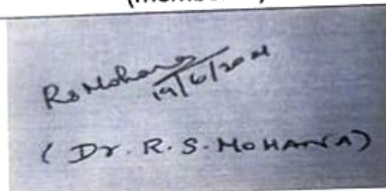 RsMohana
19/6/20
(Dr. R. S. MOHANA)